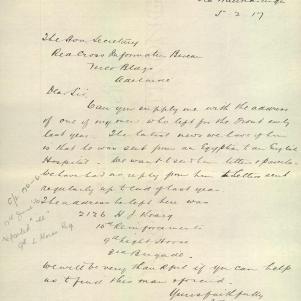 5-2-17
The Hon Secretary
Red Cross Information Bureau
Adelaide
Dear Sir,
Can you supply me with the address
of one of my men who left for the Front early
last year. The latest news we have of him
is that he was sent from an Egyptian to an English
Hospital. We want to send him letters & parcels
We have had no reply from him to letters sent
regularly up to end of last year.
The address he left here was
2126 H J
10th Reinforcements
9th Light Horse
3rd Brigade.
We will be very thankful if you can help
us to find this man
Yours faithfully